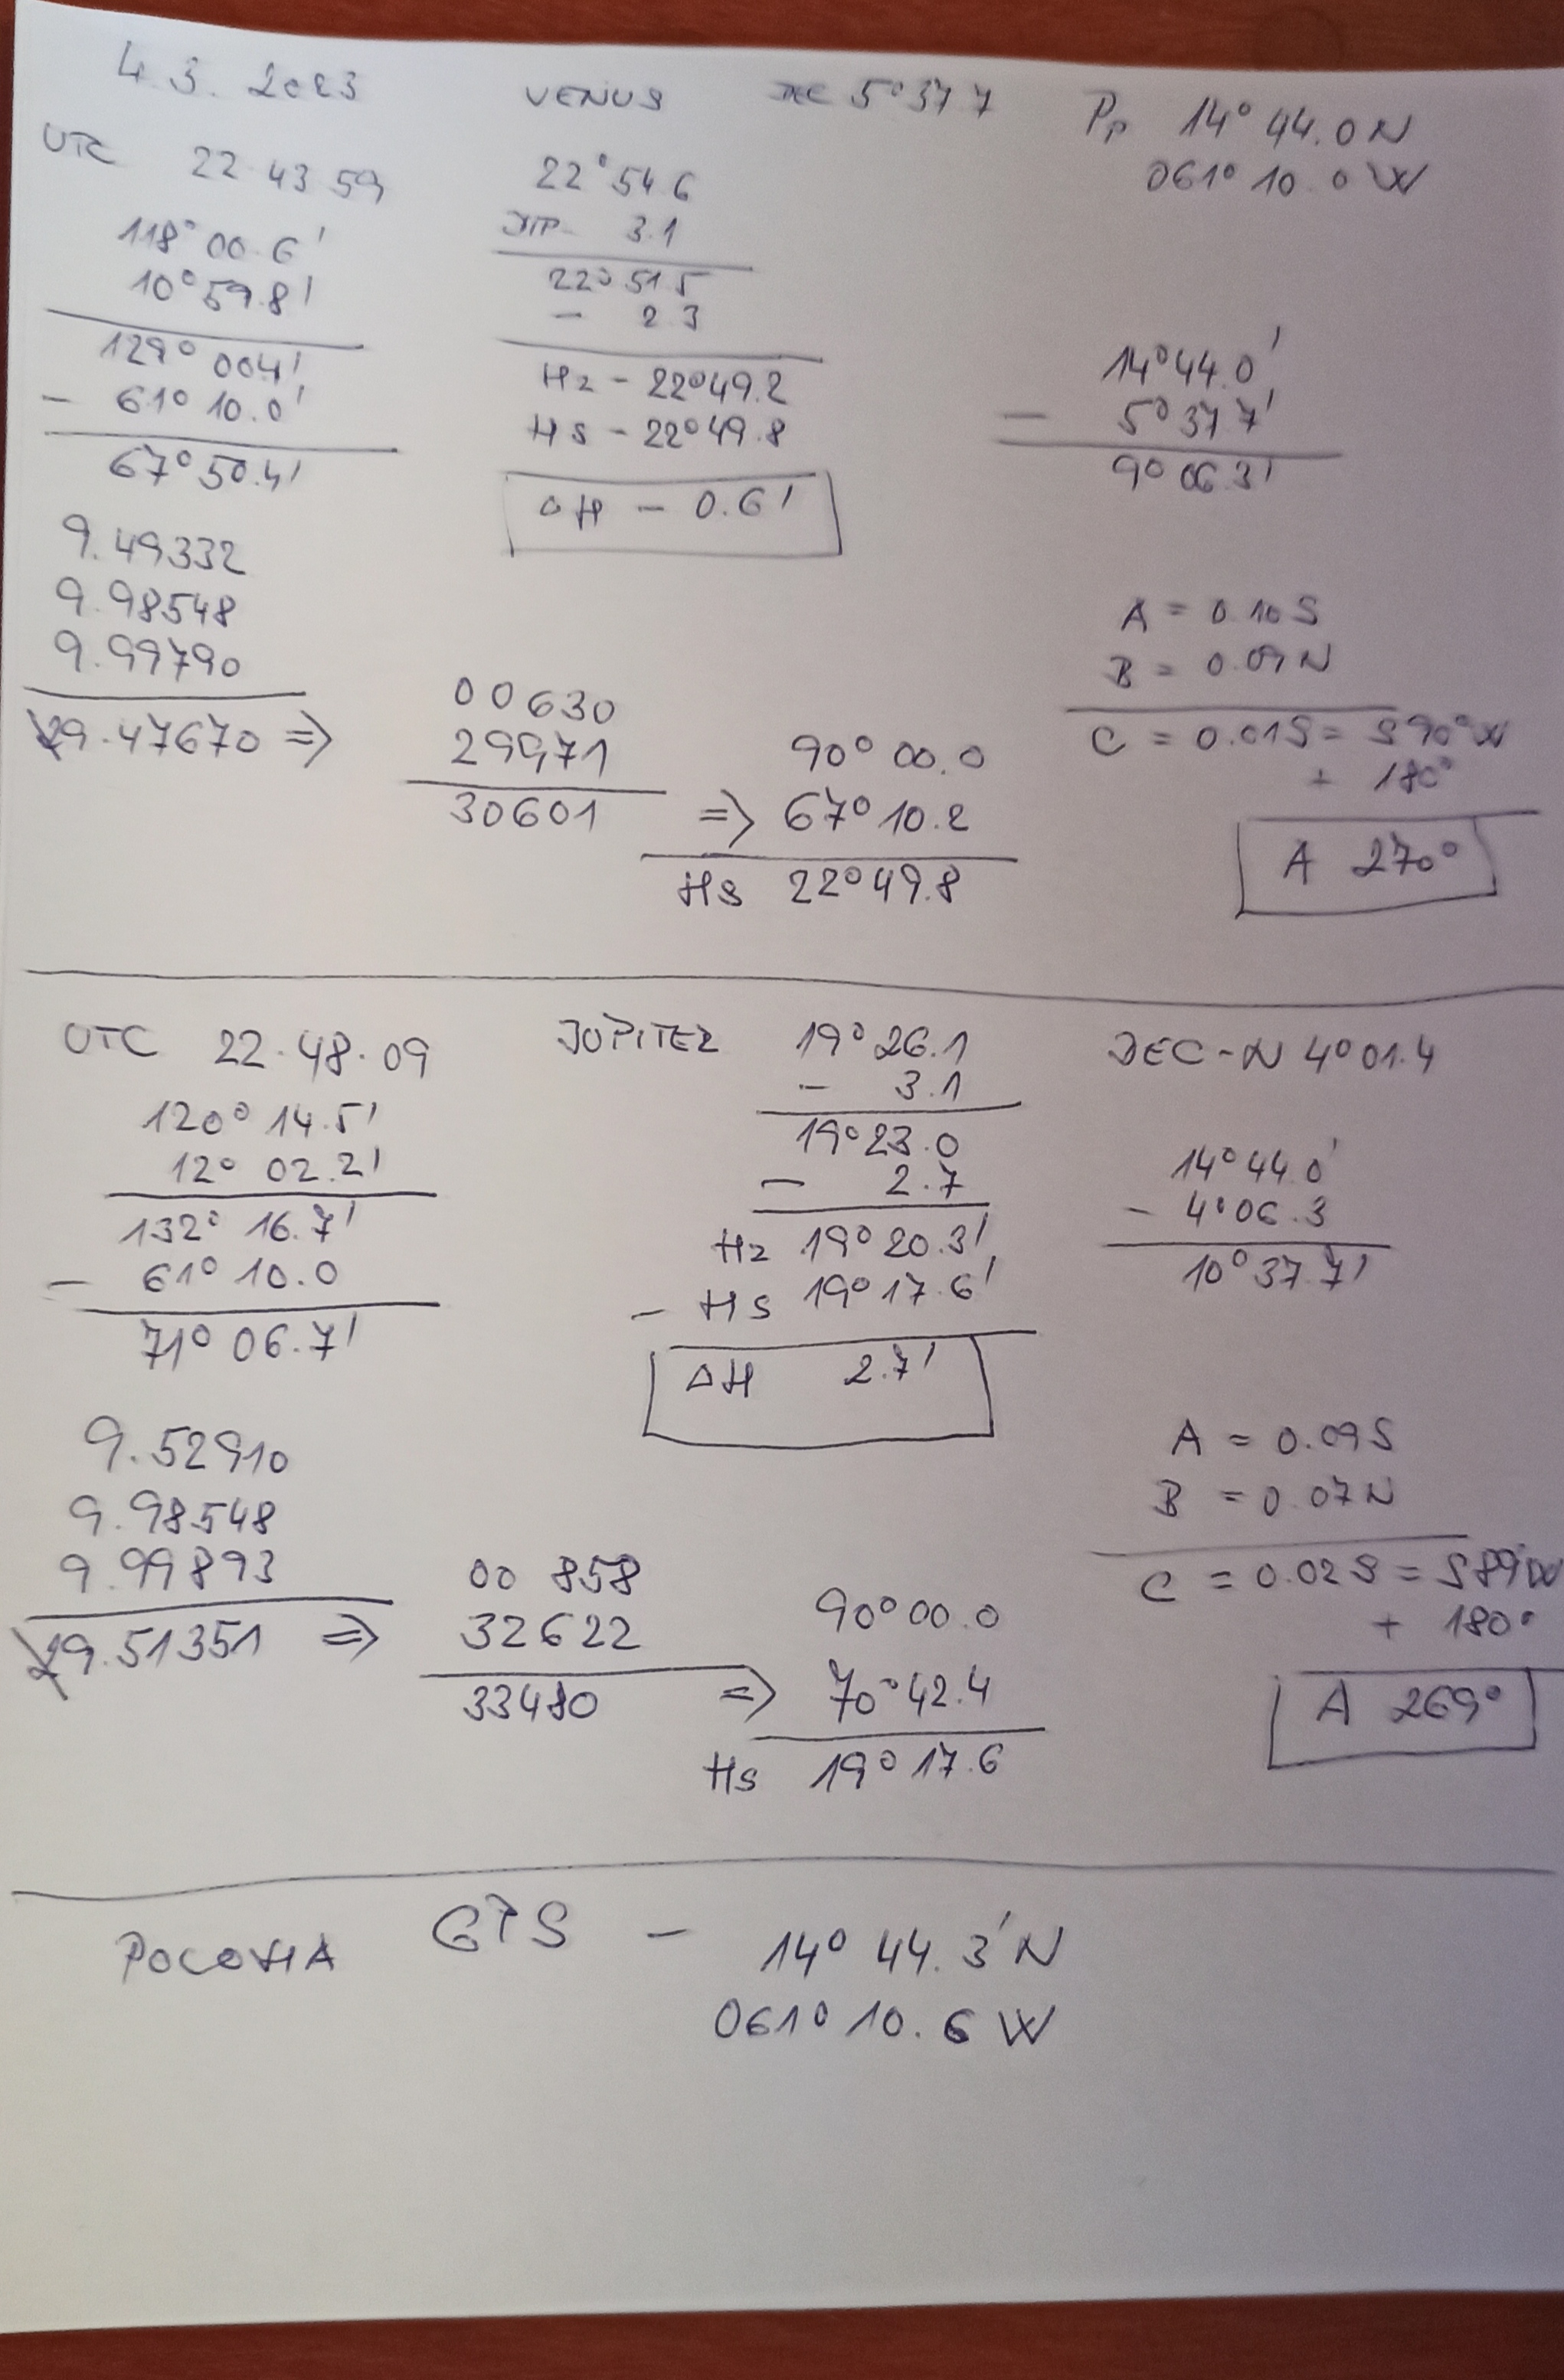 4.3. 2023 VENUS DEC 5°37.7 Pp 14°44.0N
UTC 22.43.59 22°54.6 061°10.0W
118°00.6' DIP 3.1
10°59.8' 22°51.5
129°00.4' - 2.3 14°44.0'
- 61°10.0' Hz - 22°49.2 - 5°37.7'
67°50.4' Hs - 22°49.8 9°06.3'
ΔH - 0.6'
9.49332
9.98548 A = 0.10S
9.99790 B = 0.09N
29.47670 => 00630 C = 0.01S = S90°W
29971 90°00.0 + 180°
30601 => 67°10.2
Hs 22°49.8 A 270°
UTC 22.48.09 JUPITER 19°26.1 DEC-N 4°01.4
120°14.5' - 3.1
12°02.2' 19°23.0 14°44.0'
132°16.7' - 2.7 - 4°06.3
- 61°10.0 Hz 19°20.3' 10°37.7'
71°06.7' - Hs 19°17.6'
ΔH 2.7'
9.52910 A = 0.09S
9.98548 B = 0.07N
9.99893 00858 C = 0.02S = S89°W
29.51351 => 32622 90°00.0 + 180°
33480 => 70°42.4 A 269°
Hs 19°17.6
POCOHA GPS - 14°44.3'N
061°10.6W